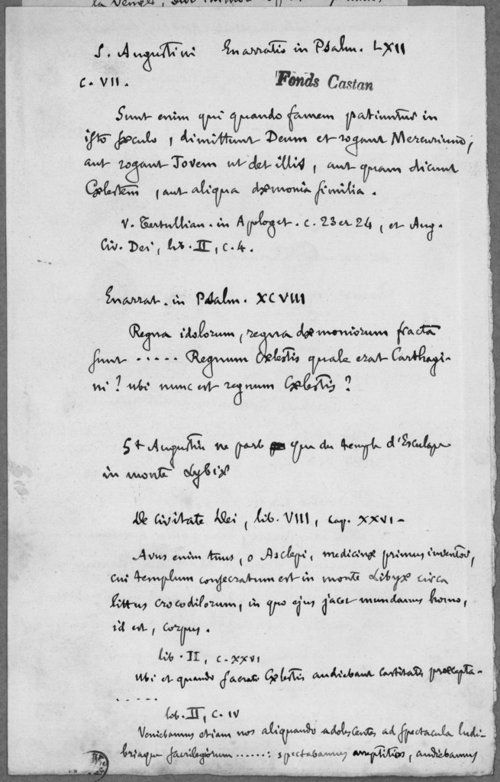 S. Augustini Enarratio in Psalm. LXII
c. VII.
Fonds Castan
Sunt enim qui quando famem patiuntur in
isto sæculo, dimittunt Deum et rogant Mercurium,
aut rogant Jovem ut det illis, aut quam dicunt
Cælestem, aut aliqua dæmonia similia.
V. Tertullian. in Apologet. c. 23 et 24, et Aug.
Civ. Dei, lib. II, c. 4.
Enarrat. in Psalm. XCVIII
Regna idolorum, regna dæmoniorum fracta
sunt ..... Regnum Cælestis quale erat Carthagi-
ni? ubi nunc est regnum Cælestis?
St Augustin ne parle que du temple d'Esculape
in monte Lybiæ
De Civitate Dei, lib. VIII, cap. XXVI-
Avus enim tuus, o Asclepi, medicinæ primus inventor,
cui templum consecratum est in monte Libyæ circa
littus crocodilorum, in quo ejus jacet mundanus homo,
id est, corpus.
lib. II, c. XXVI
Ubi et quando sacrati Cælestis audiebant castitatis præcepta-
.....
lib. II, c. IV
Veniebamus etiam nos aliquando adolescentes ad spectacula ludi-
briaque sacrilegiorum ......: spectabamus arreptitios, audiebamus